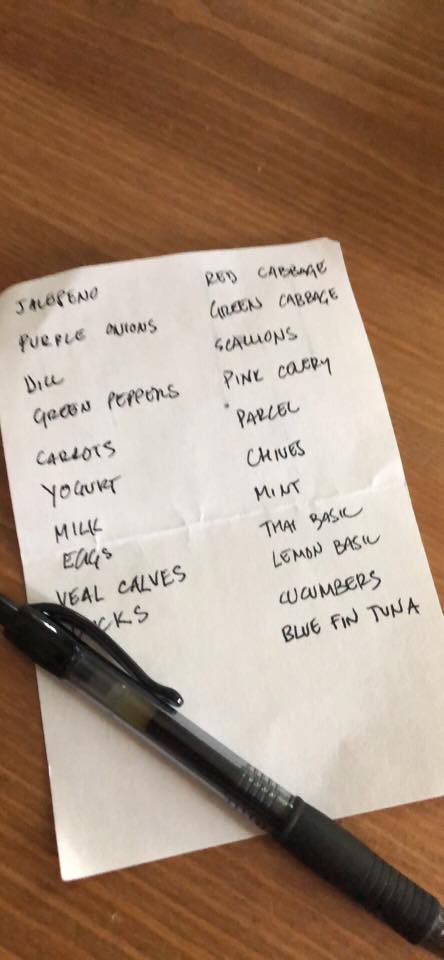 JALOPENO
PURPLE ONIONS
DILL
GREEN PEPPERS
CARROTS
YOGURT
MILK
EGGS
VEAL CALVES
RED CABBAGE
GREEN CABBAGE
SCALLIONS
PINK CELERY
PARCEL
CHIVES
MINT
THAI BASIL
LEMON BASIL
CUCUMBERS
BLUE FIN TUNA